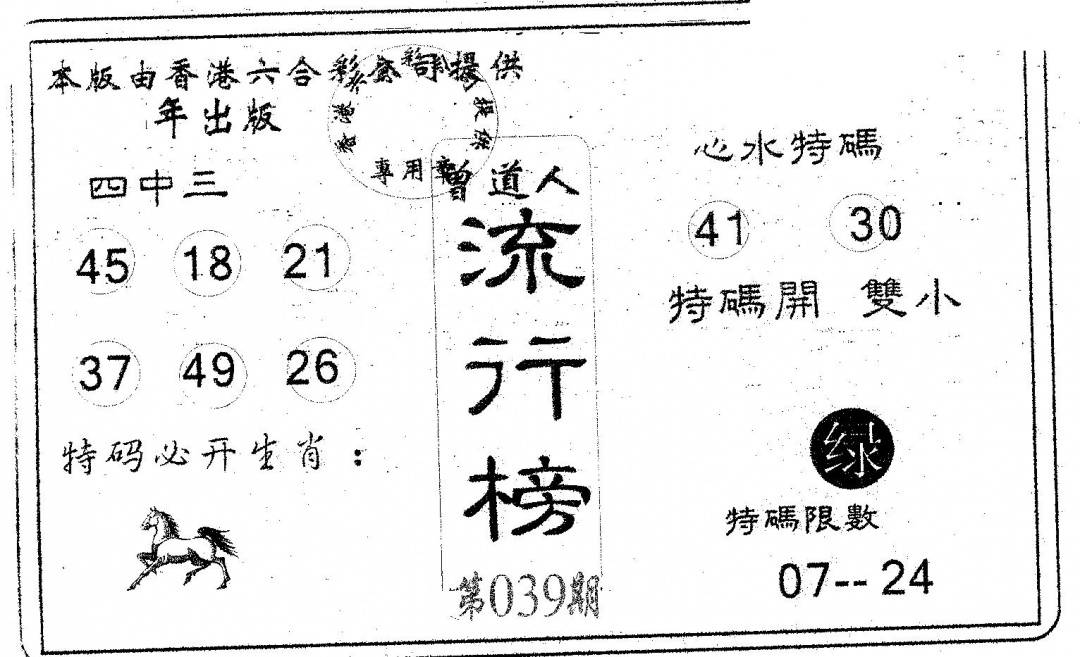 本版由香港六合彩公司提供
年出版
香港彩提供
專用章
四中三
45 18 21
37 49 26
特码必开生肖：
曾道人
流行榜
第039期
心水特碼
41 30
特碼開 雙小
绿
特碼限數
07--24